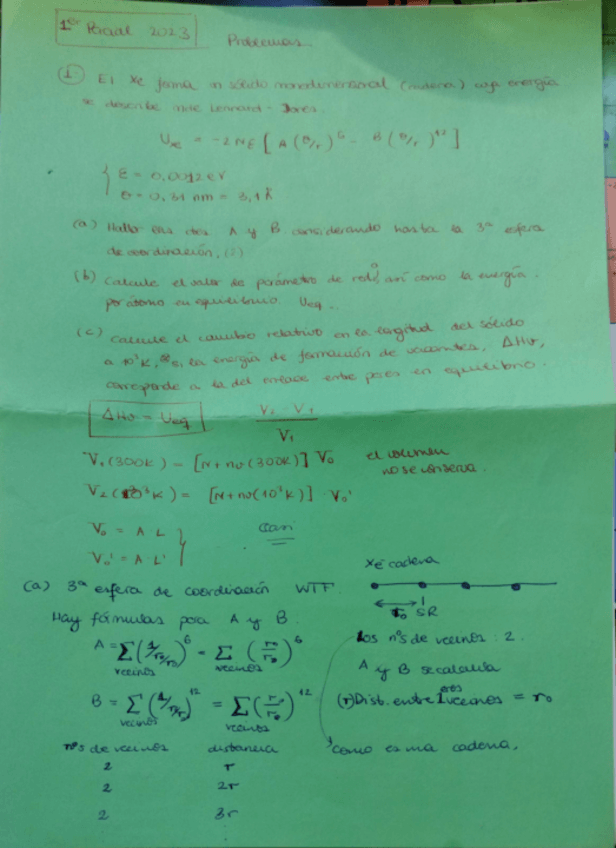 1er Parcial 2023
Problemas
1. El Xe forma un sólido monodimensional (cadena) cuya energía
se describe mde Lennard-Jones.
U = -2Nε [ A (σ/r)^6 - B (σ/r)^12 ]
ε = 0,0012 eV
σ = 0,31 nm = 3,1 Å
(a) Halla las ctes A y B considerando hasta la 3ª esfera
de coordinación. (2)
(b) Calcule el valor de parámetro de red, así como la energía
por átomo en equilibrio. Ueq.
(c) Calcule el cambio relativo en la longitud del sólido
a 10³K, la energía de formación de vacantes, ΔHv,
corresponde a la del enlace entre pares en equilibrio.
ΔHv = Ueq
V2 - V1
V1
V1(300K) = [N + nv(300K)] V0
el volumen
no se conserva.
V2(10³K) = [N + nv(10³K)] · V0'
V0 = A L
V0' = A L'
(a) 3ª esfera de coordinación WTF.
Xe cadena
r0
Hay fórmulas para A y B.
los nºs de vecinos: 2.
A = Σ (1/r/r0)^6 = Σ (r0/r)^6
vecinos vecinos
A y B se calcula
B = Σ (1/r/r0)^12 = Σ (r/r0)^12
vecinos vecinos
(r) Dist. entre 1eros vecinos = r0
nºs de vecinos distancia
como es una cadena.
2 r
2 2r
2 3r